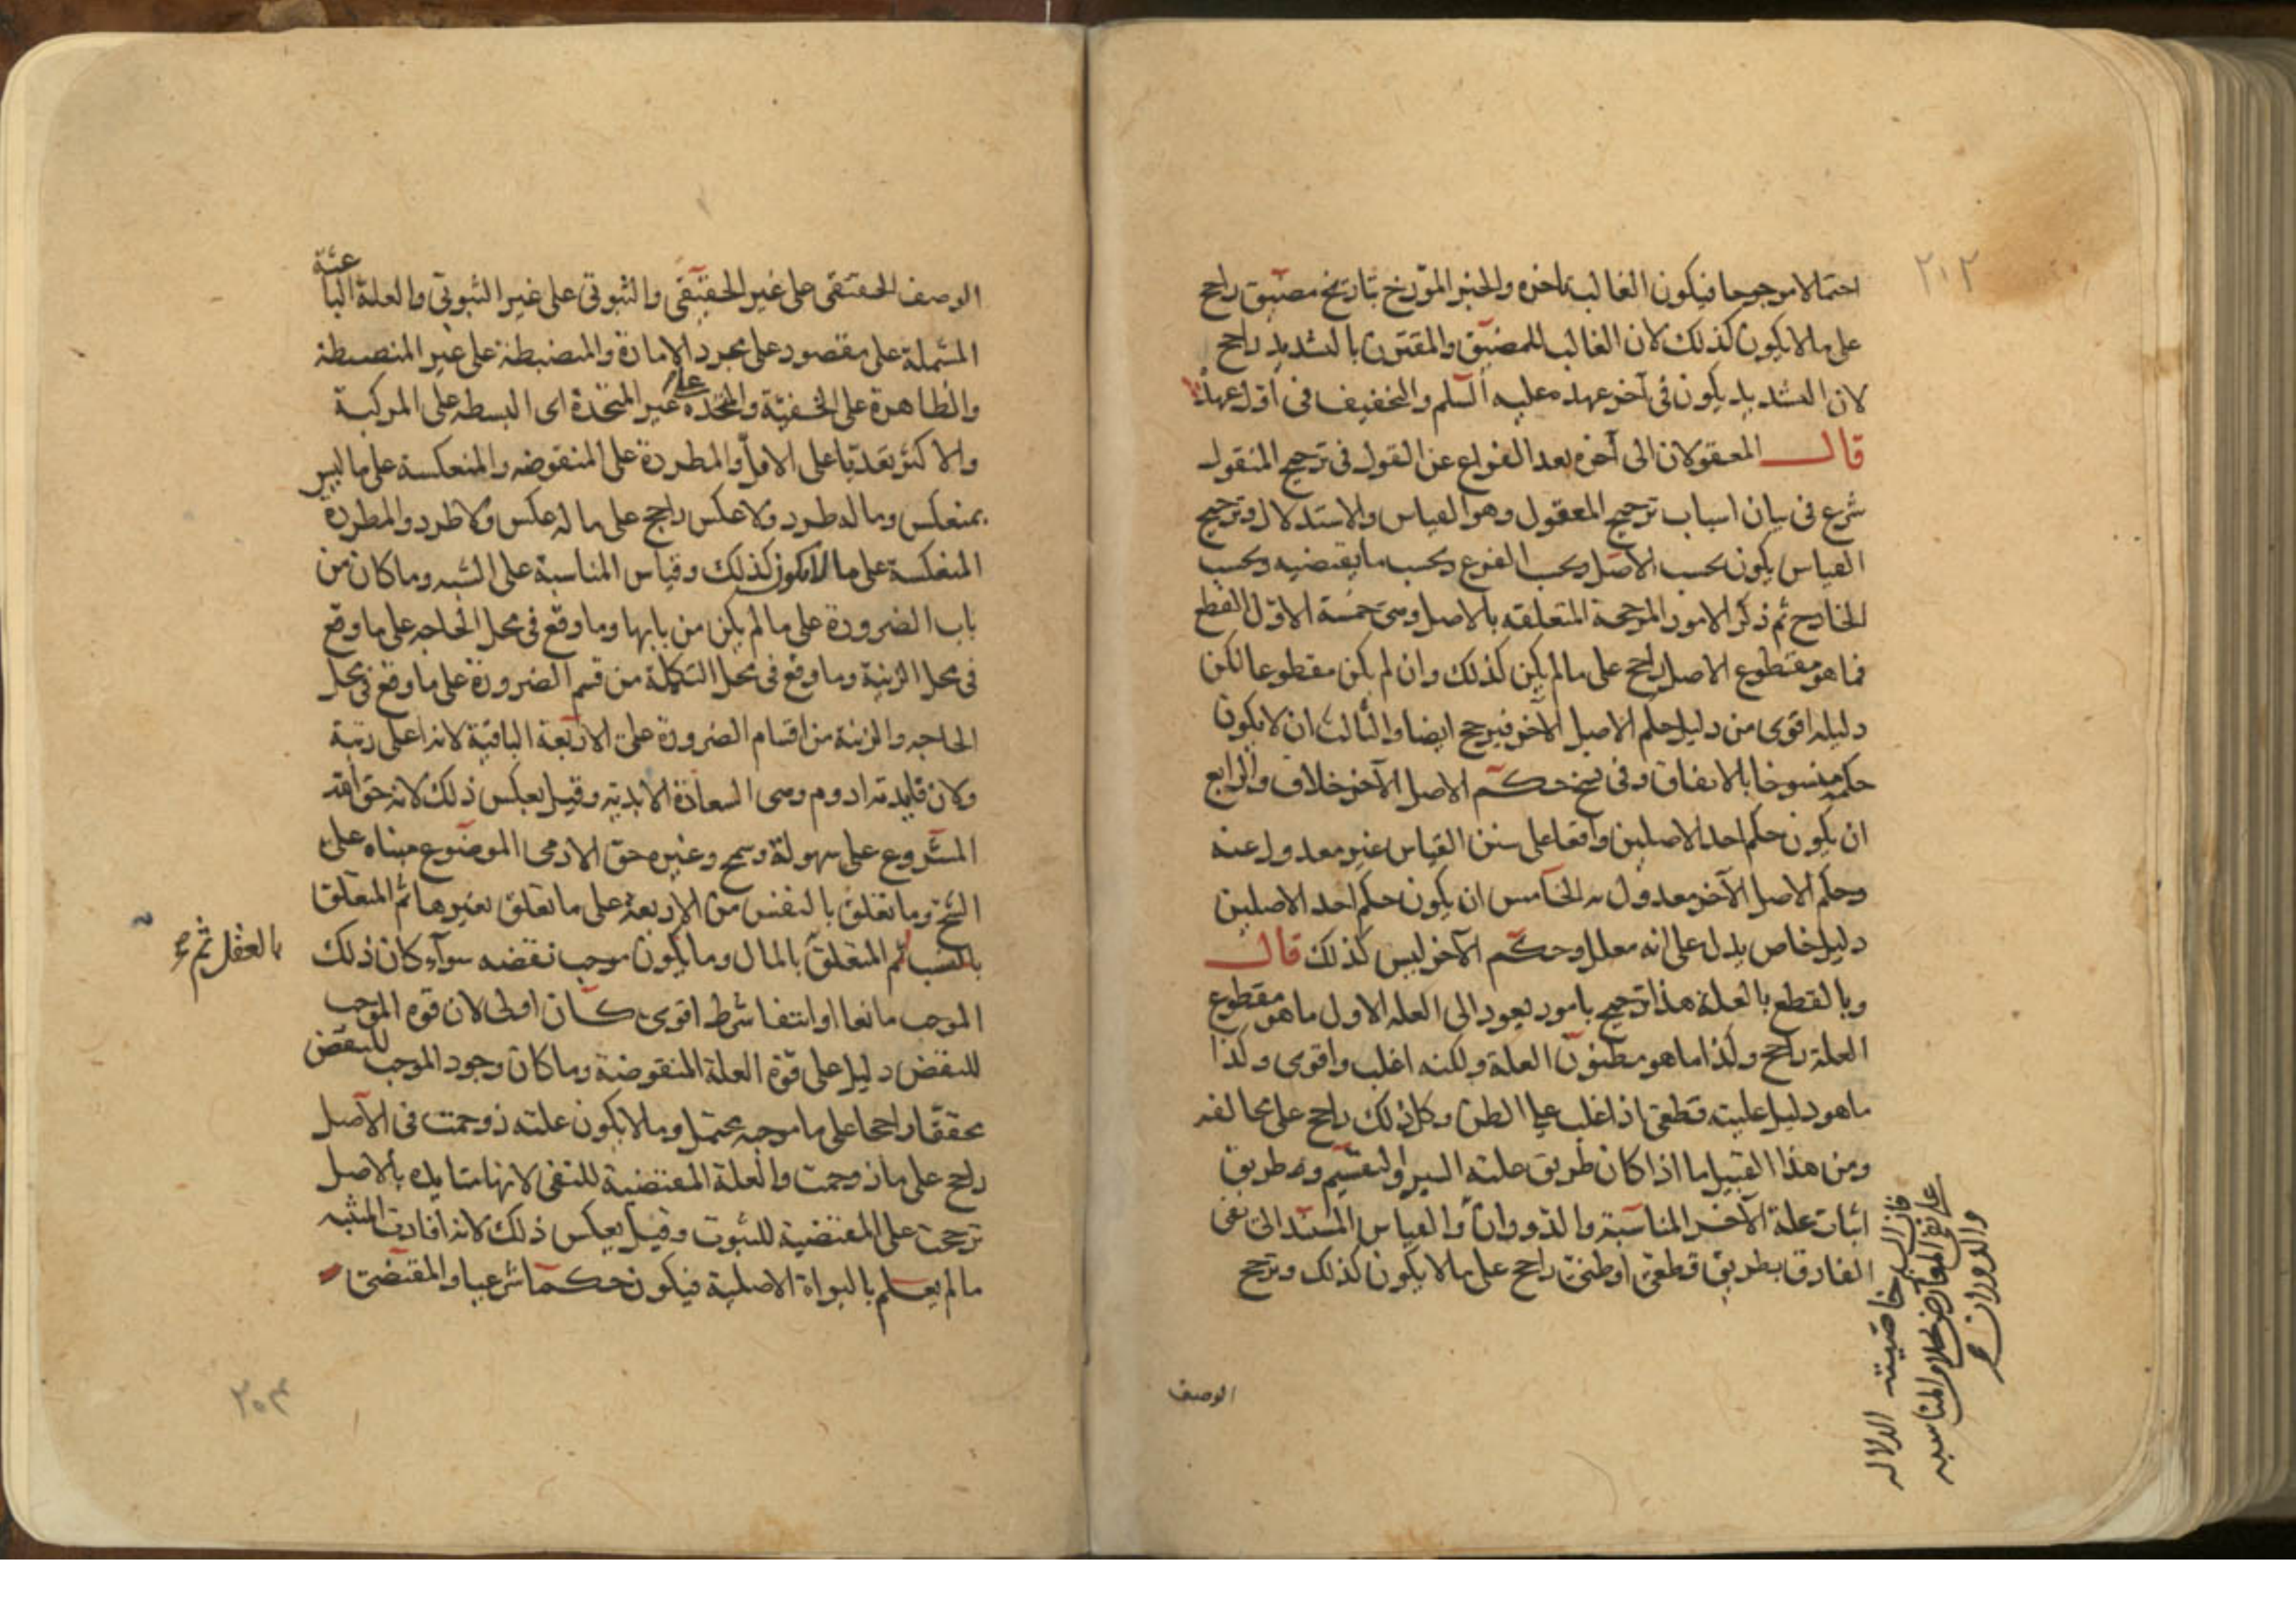 ٢٠٢
احتمالا مرجوحا فيكون الغالب تاخره والخبر المؤرخ بتاريخ مضيق راجح
على ما لا يكون كذلك لان الغالب للمضيق والمقترن بالتشديد راجح
لان التشديد يكون فى آخر عهده عليه السلم والتخفيف فى اول عهده
قال المعقولان الى آخره بعد الفراغ عن القول فى ترجيح المنقول
شرع فى بيان اسباب ترجيح المعقول وهو القياس والاستدلال وترجيح
القياس يكون بحسب الاصل وبحسب الفرع وبحسب ما يقتضيه وبحسب
الخارج ثم ذكر الامور المرجحة المتعلقه بالاصل وهى خمسة الاول القطع
فما هو مقطوع الاصل راجح على ما لم يكن كذلك وان لم يكن مقطوعا لكن
دليله اقوى من دليل حكم الاصل الآخر فيرجح ايضا والثالث ان لا يكون
حكمه منسوخا بالاتفاق وفى نسخ حكم الاصل الآخر خلاف والرابع
ان يكون حكم احد الاصلين واقعا على سنن القياس غير معدول عنه
وحكم الاصل الآخر معدول به الخامس ان يكون حكم احد الاصلين
دليل خاص يدل على انه معلل وحكم الآخر ليس كذلك قال
وبالقطع بالعلة هذا ترجيح بامور يعود الى العله الاول ما هو مقطوع
العلة راجح وكذا ما هو مظنون العلة ولكنه اغلب واقوى وكذا
ما هو دليل عليته قطعى اذ اغلب على الظن وكل ذلك راجح على مخالفه
ومن هذا القبيل ما اذا كان طريق علته السبر والتقسيم وطريق
اثبات علة الآخر المناسبة والدوران والقياس المسند الى نفى
الفارق بطريق قطعى او ظنى راجح على ما لا يكون كذلك وترجح
فان السبر خاصيته الدلاله
على نفى المعارض بخلاف المناسبه
والدوران صح
الوصف
الوصف الحقيقى على غير الحقيقى والثبوتى على غير الثبوتى والعلة الباعثة
المشتملة على مقصود على مجرد الامارة والمنضبطة على غير المنضبطة
والظاهرة على الخفية والمتحدة على غير المتحدة اى البسيطه على المركبة
والاكثر تعديا على الاقل والمطردة على المنقوضه والمنعكسة على ما ليس
بمنعكس وما له طرد ولا عكس راجح على ما له عكس ولا طرد والمطردة
المنعكسة على ما لا يكون كذلك وقياس المناسبة على الشبه وما كان من
باب الضرورة على ما لم يكن من بابها وما وقع فى محل الحاجه على ما وقع
فى محل الزينة وما وقع فى محل التكملة من قسم الضرورة على ما وقع فى محل
الحاجه والزينة من اقسام الضرورة على الاربعة الباقية لانه اعلى رتبة
ولان فايدته ادوم وهى السعادة الابدية وقيل بعكس ذلك لانه حق الله
المشروع على سهولة وسمح وغيره حق الادمى الموضوع مبناه على
الشح وما تعلق بالنفس من الاربعة على ما تعلق بغيرها ثم المتعلق
بالنسب ثم المتعلق بالمال وما يكون موجب نقضه سوآء كان ذلك
بالعقل ثم صح
الموجب مانعا او انتفا شرط اقوى كان اولى لان قوة الموجب
للنقض دليل على قوة العلة المنقوضة وما كان وجود الموجب للنقض
محققا راجحا على ما موجبه محتمل وما لا يكون علته زوحمت فى الاصل
راجح على ما زوحمت والعلة المقتضية للنفى لانها متايده بالاصل
ترجحت على المقتضية للثبوت وقيل بعكس ذلك لانه افادت المثبه
ما لم يعلم بالبراة الاصلية فيكون حكما شرعيا والمقتضى
٢٠٣